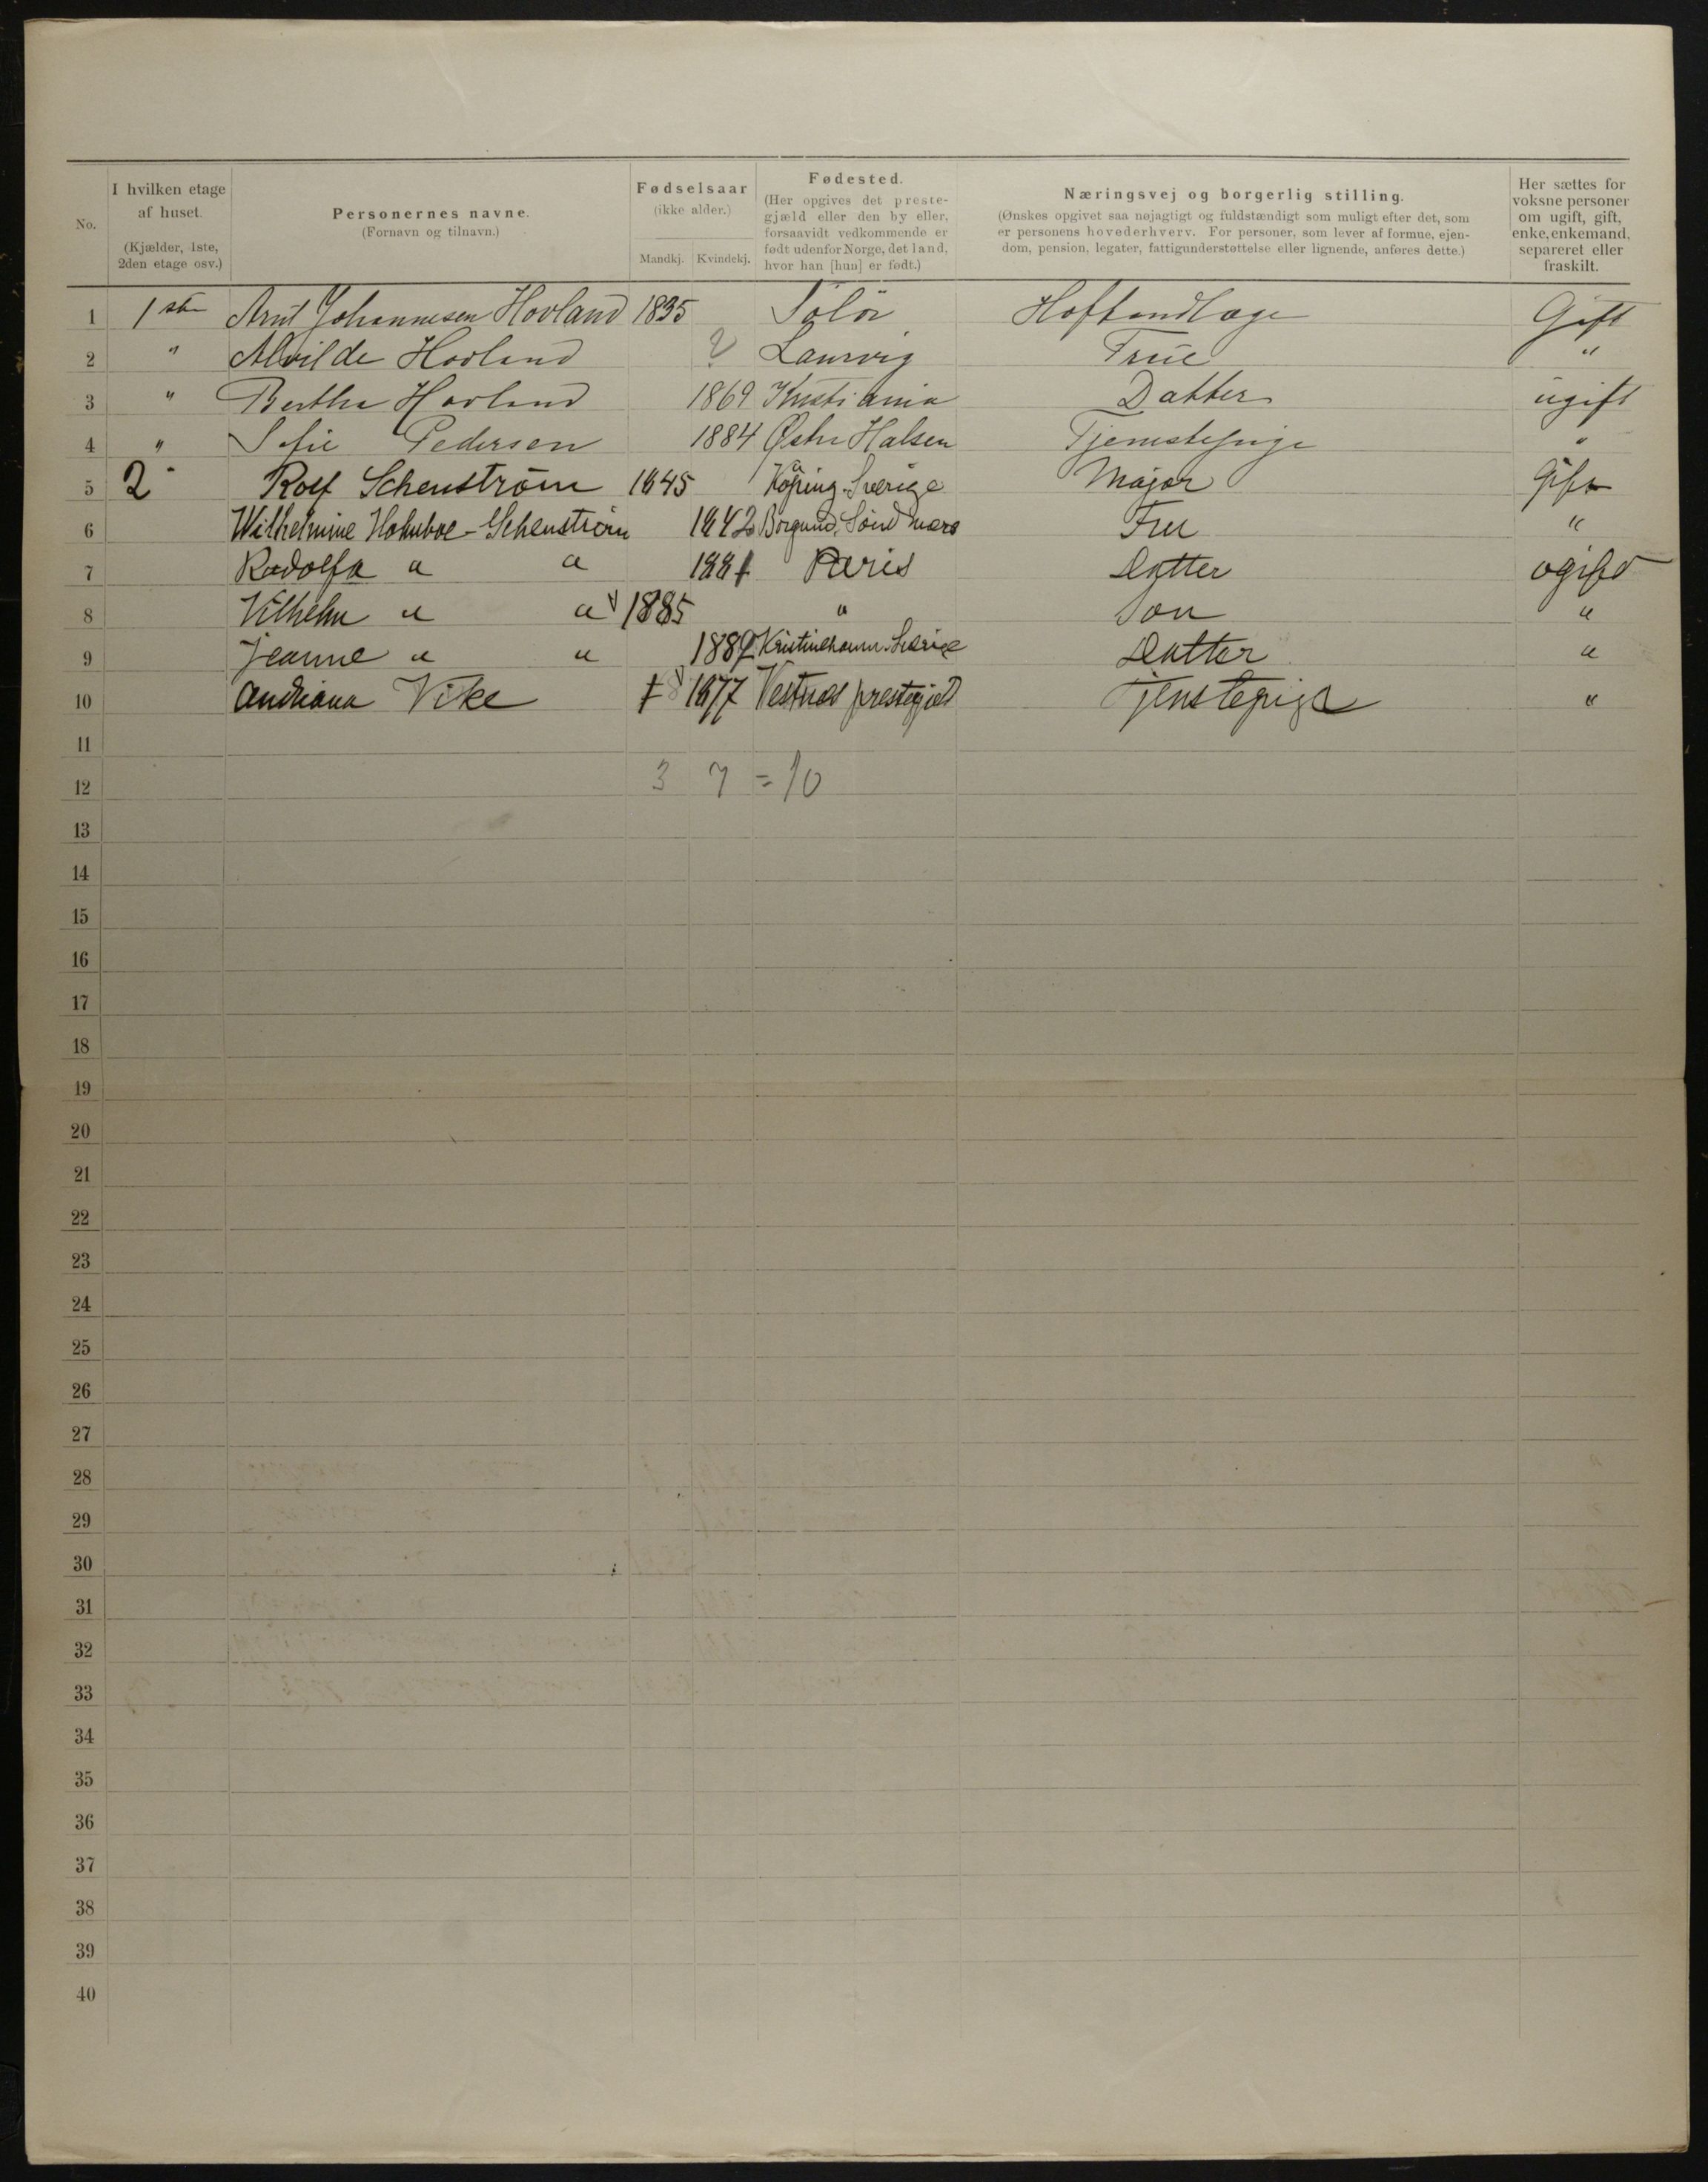 No.
I hvilken etage af huset. (Kjælder, 1ste, 2den etage osv.)
Personernes navne. (Fornavn og tilnavn.)
Fødselsaar (ikke alder.)
Mandkj. Kvindekj.
Fødested. (Her opgives det prestegjæld eller den by eller, forsaavidt vedkommende er født udenfor Norge, det land, hvor han [hun] er født.)
Næringsvej og borgerlig stilling. (Ønskes opgivet saa nøjagtigt og fuldstændigt som muligt efter det, som er personens hovederhverv. For personer, som lever af formue, ejendom, pension, legater, fattigunderstøttelse eller lignende, anføres dette.)
Her sættes for voksne personer om ugift, gift, enke, enkemand, separeret eller fraskilt.
1 1ste Johannesen Hovland 1835 Solör Gift
2 " Alvilde Hovland ? Laurvig Frue "
3 " Bertha Hovland 1869 Kristiania Datter ugift
4 " Sofie Pedersen 1884 Østre Halsen Tjenestepige "
5 2 " Rolf Schenström 1845 Köping. Sverige Major Gift
6 Wilhelmine Holmboe-Schenström 1842 Borgund, Söndmøre Fru "
7 Rodolfa " " 1881 Paris Datter ogift
8 Vilhelm " " 1885 " Son "
9 Jeanne " " 1889 Kristinehamn. Sverige Datter "
10 Andriana Vike 1877 Vestnes prestegjeld Tjenstepige "
11
12 3 7 = 10
13
14
15
16
17
18
19
20
21
22
23
24
25
26
27
28
29
30
31
32
33
34
35
36
37
38
39
40